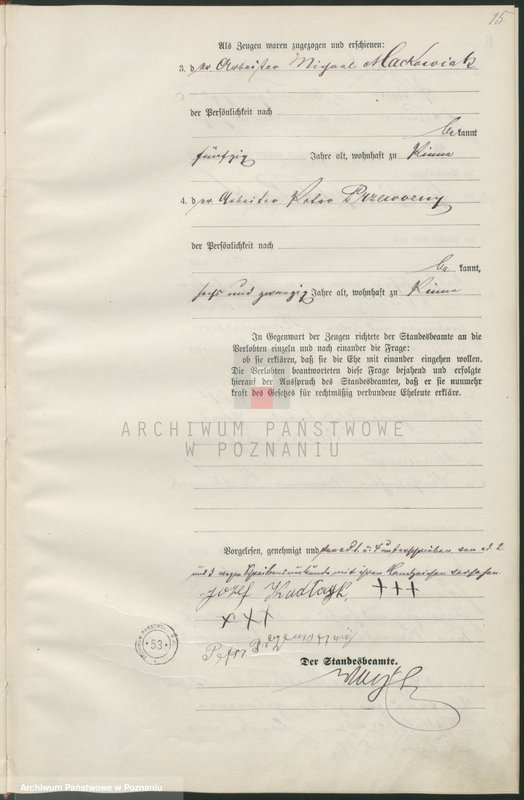 15
Als Zeugen waren zugezogen und erschienen:
3. der Arbeiter Michael Mackowiak
der Persönlichkeit nach
bekannt
fünfzig Jahre alt, wohnhaft zu
4. der Arbeiter Peter Przewozny
der Persönlichkeit nach
be kannt,
sechs und zwanzig Jahre alt, wohnhaft zu
In Gegenwart der Zeugen richtete der Standesbeamte an die
Verlobten einzeln und nach einander die Frage:
ob sie erklären, daß sie die Ehe mit einander eingehen wollen.
Die Verlobten beantworteten diese Frage bejahend und erfolgte
hierauf der Ausspruch des Standesbeamten, daß er sie nunmehr
kraft des Gesetzes für rechtmäßig verbundene Eheleute erkläre.
ARCHIWUM PAŃSTWOWE
W POZNANIU
Vorgelesen, genehmigt und von ad 1 u. 4 unterschrieben von ad 2
und 3 wegen Schreibensunkunde mit ihren Handzeichen versehen
Jozef +++
+++
53
Der Standesbeamte.
Archiwum Państwowe w Poznaniu